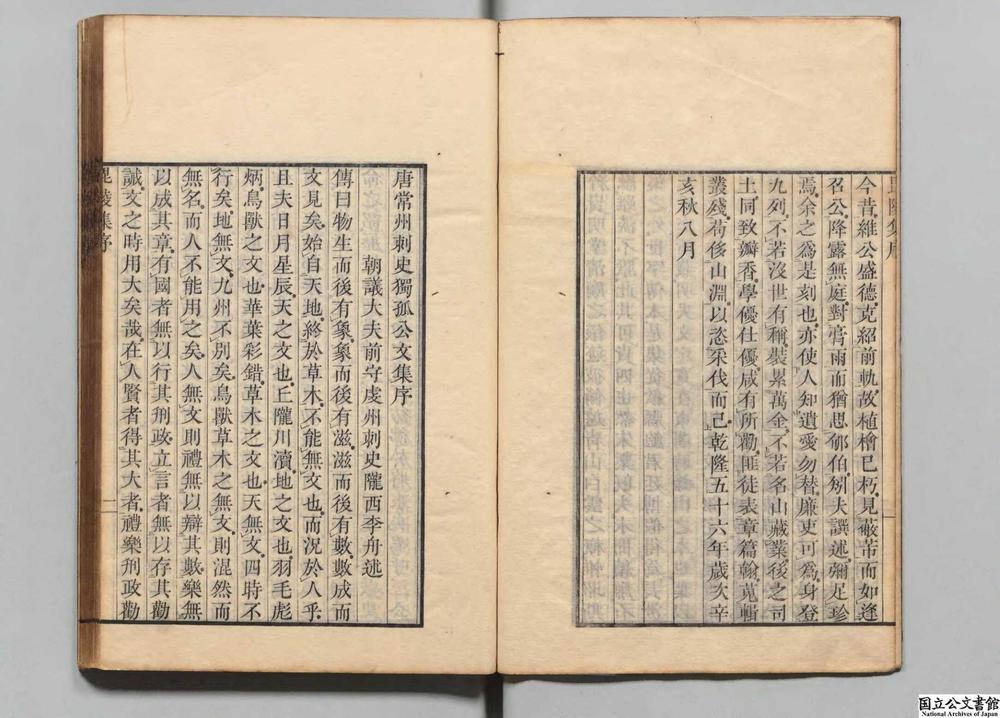 毘陵集序
今昔維公盛德克紹前軌故植檜已朽見蔽芾而如逢
召公降露無庭對膏雨而猶思郇伯矧夫譔述彌足珍
焉余之爲是刻也亦使人知遺愛勿替廉吏可爲身登
九列不若沒世有稱裝累萬金不若名山藏業後之司
土同致瓣香學優仕優咸有所勸匪徒表章篇翰蒐輯
叢殘荷侈山淵以恣采伐而已乾隆五十六年歲次辛
亥秋八月
唐常州刺史獨孤公文集序
朝議大夫前守虔州刺史隴西李舟述
傳曰物生而後有象象而後有滋滋而後有數數成而
文見矣始自天地終於草木不能無文也而況於人乎
且夫日月星辰天之文也丘隴川瀆地之文也羽毛彪
炳鳥獸之文也華葉彩錯草木之文也天無文四時不
行矣地無文九州不別矣鳥獸草木之無文則混然而
無名而人不能用之矣人無文則禮無以辯其數樂無
以成其章有國者無以行其刑政立言者無以存其勸
誡文之時用大矣哉在人賢者得其大者禮樂刑政勸
毘陵集序
二
国立公文書館
National Archives of Japan